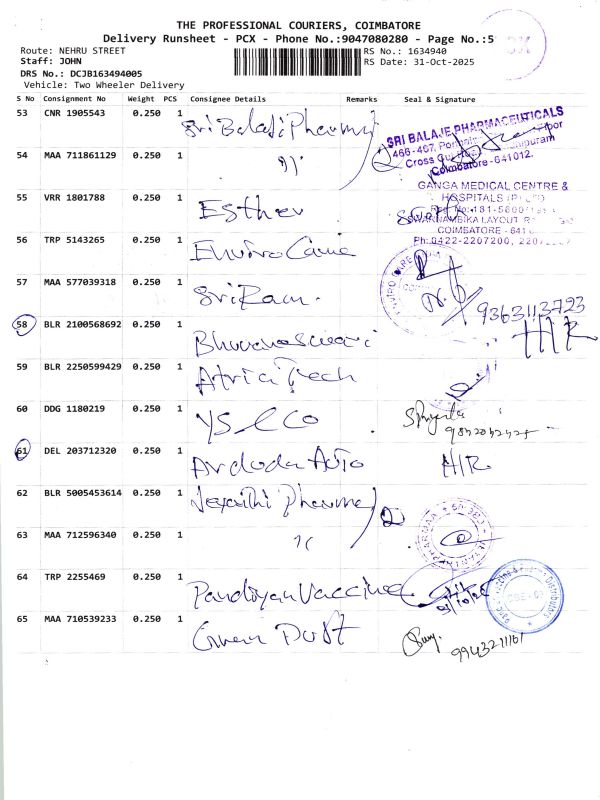 THE PROFESSIONAL COURIERS, COIMBATORE
Delivery Runsheet - PCX - Phone No.:9047080280 - Page No.:5
Route: NEHRU STREET
RS No.: 1634940
Staff: JOHN
RS Date: 31-Oct-2025
DRS No.: DCJB163494005
Vehicle: Two Wheeler Delivery
S No Consignment No Weight PCS Consignee Details Remarks Seal & Signature
53 CNR 1905543 0.250 1 Sri Balaji Pharmacy
SRI BALAJE PHARMACEUTICALS
466-467,
Cross
Coimbatore - 641012.
54 MAA 711861129 0.250 1 "
GANGA MEDICAL CENTRE &
HOSPITALS (P) LTD
55 VRR 1801788 0.250 1 Esther
SWARNAMBIKA LAYOUT
COIMBATORE - 641
Ph:0422-2207200,
56 TRP 5143265 0.250 1 Enviro Care
ENVIRO CARE
57 MAA 577039318 0.250 1 Sri Ram.
9363113723
58 BLR 2100568692 0.250 1 Bhuvaneswari H/R
59 BLR 2250599429 0.250 1 Atria Tech
60 DDG 1180219 0.250 1 YS & CO
61 DEL 203712320 0.250 1 Auto H/R
62 BLR 5005453614 0.250 1 Pharma 2
63 MAA 712596340 0.250 1 "
64 TRP 2255469 0.250 1 Pandiyan Vaccine
CBE
65 MAA 710539233 0.250 1 Green Dust
9943211161